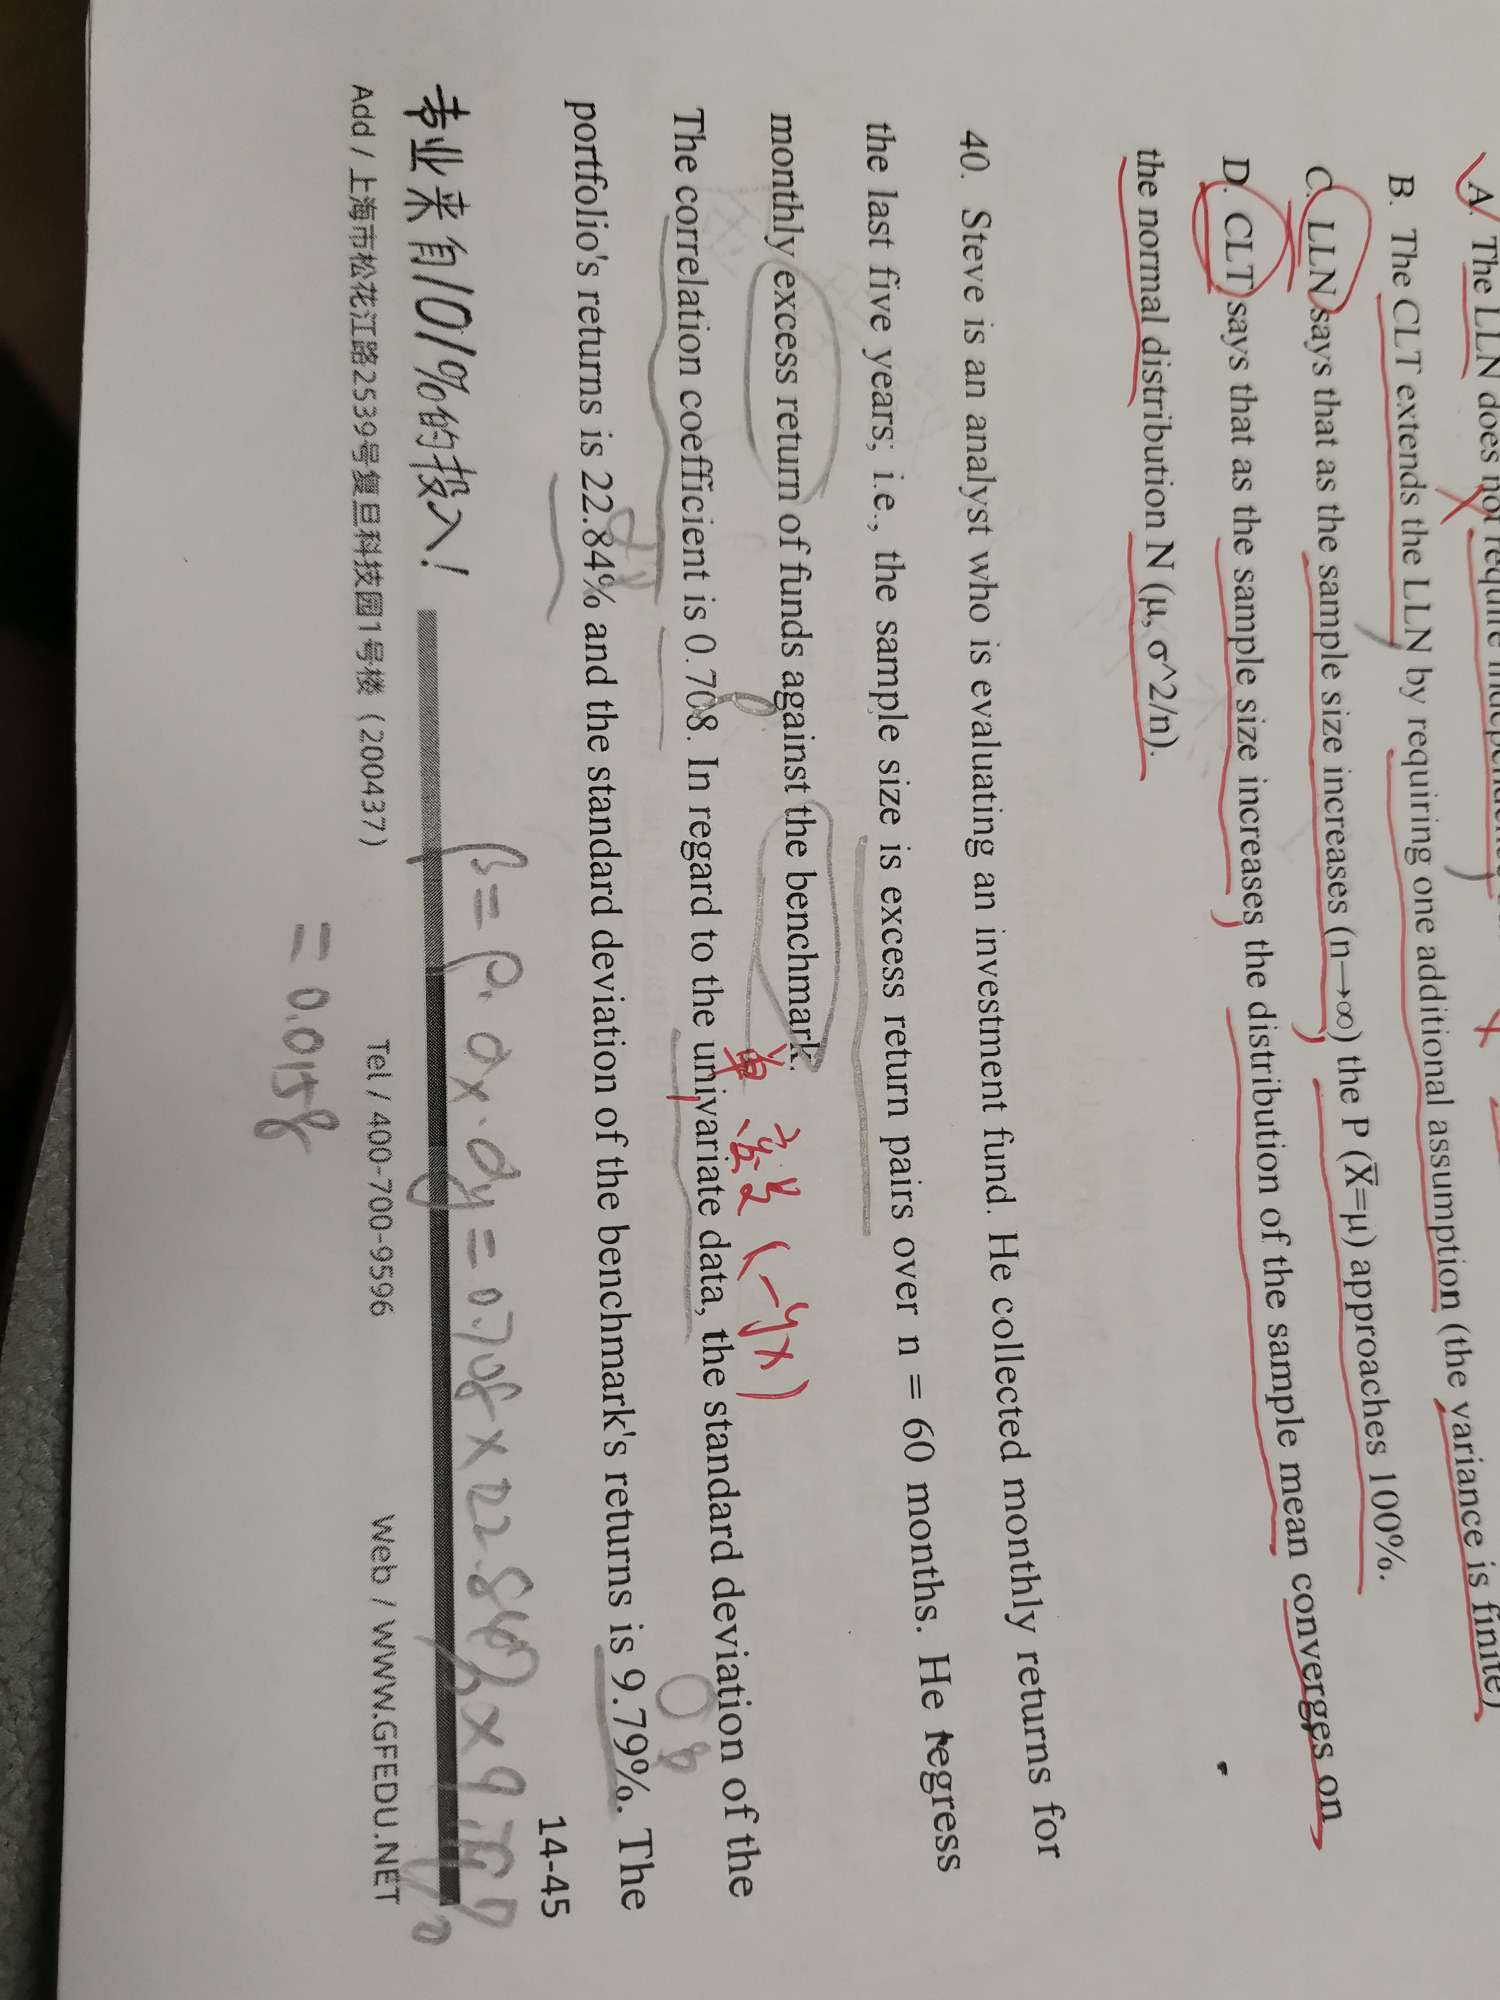 A. The LLN does not require
B. The CLT extends the LLN by requiring one additional assumption (the variance is finite)
C. LLN says that as the sample size increases (n→∞) the P (X̄=μ) approaches 100%.
D. CLT says that as the sample size increases the distribution of the sample mean converges on
the normal distribution N (μ, σ^2/n).
40. Steve is an analyst who is evaluating an investment fund. He collected monthly returns for
the last five years; i.e., the sample size is excess return pairs over n = 60 months. He regress
monthly excess return of funds against the benchmark.
单 变量 (一个x)
The correlation coefficient is 0.708. In regard to the univariate data, the standard deviation of the
σy
ρ
σx
portfolio's returns is 22.84% and the standard deviation of the benchmark's returns is 9.79%. The
14-45
专业来自101%的投入!
β = ρ. σx. σy = 0.708 × 22.84% × 9.79%
Add / 上海市松花江路2539号复旦科技园1号楼 (200437) Tel / 400-700-9596 Web / WWW.GFEDU.NET
= 0.0158